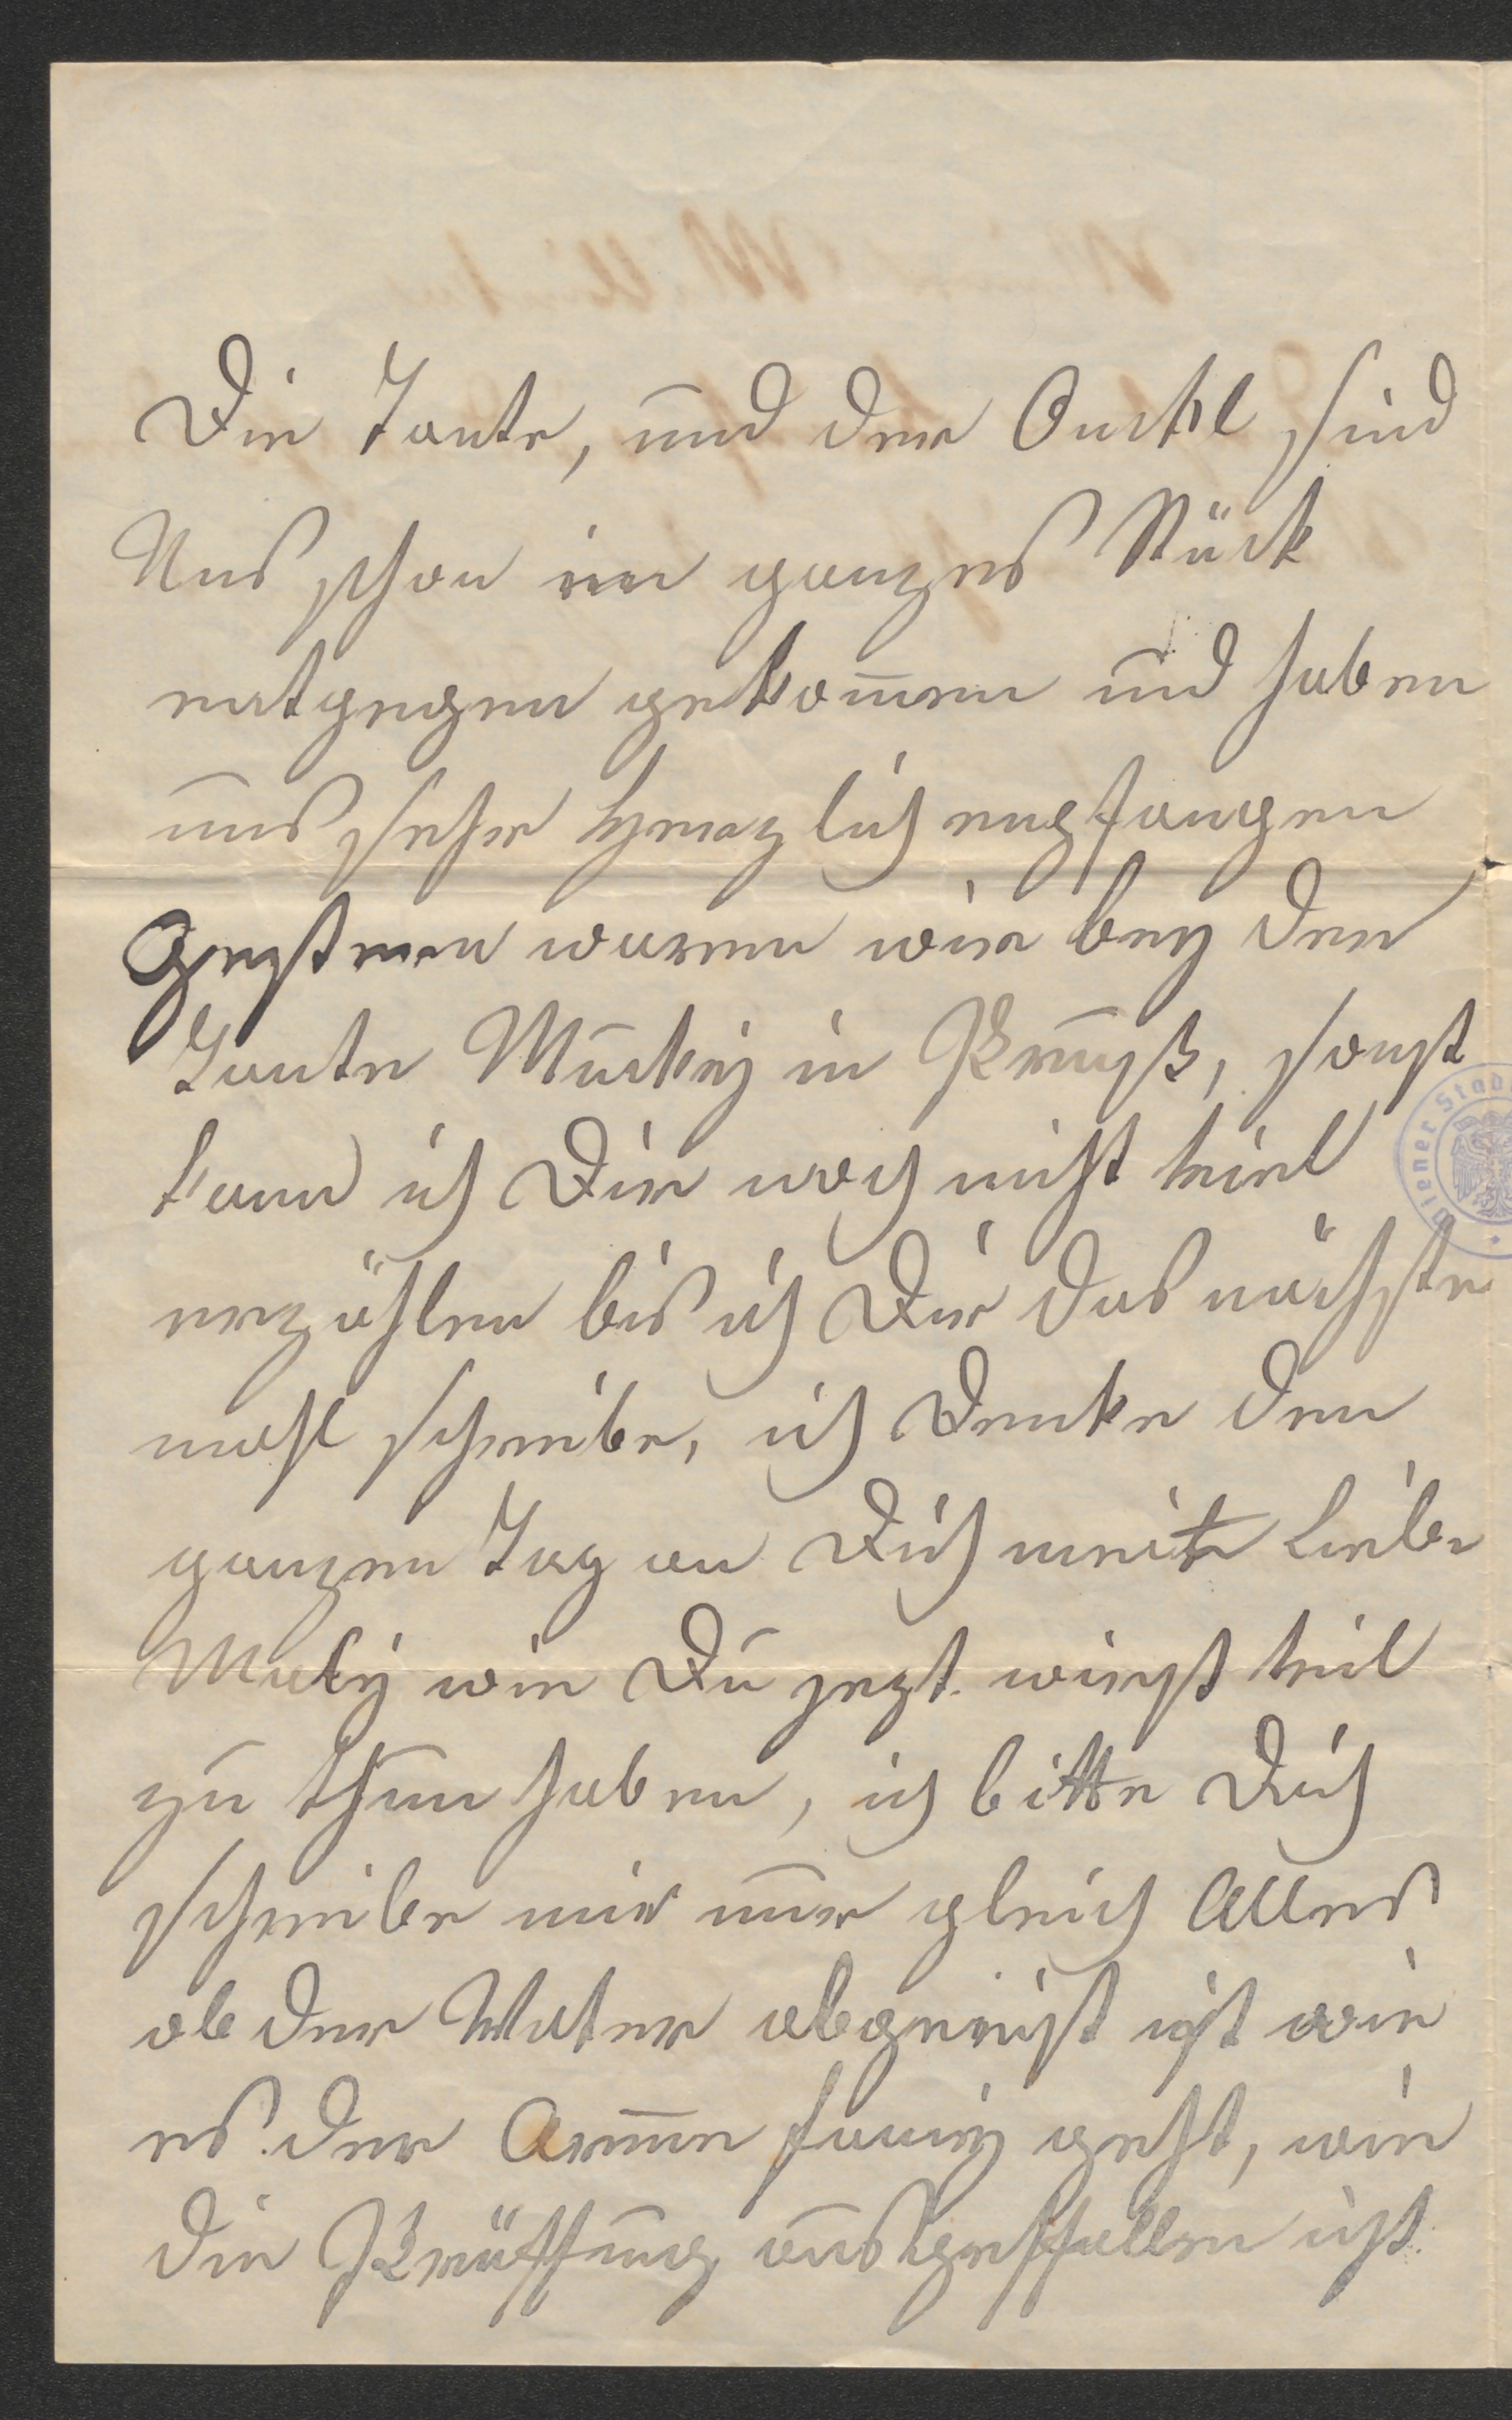 Die Tante, und der Onckl sind
Uns schon ein ganzes Stück
entgegen gekom̅en und haben
uns sehr herzlich empfangen
Gestern waren wir bey der
Tante Muckiy in Preuß, sonst
kann ich Dir noch nicht viel
erzählen bis ich Dir das nächste
mahl schreibe, ich Denke den
ganzen Tag an Dich meine Liebe
Maly wie Du jezt wirst viel
zu thun haben, ich bitte Dich
schreibe mir nur gleich Alles
ob der Vater abgereist ist wie
es der Arme Fanny geht, wie
die Prüffung ausgeffallen ist.
Wiener Stad